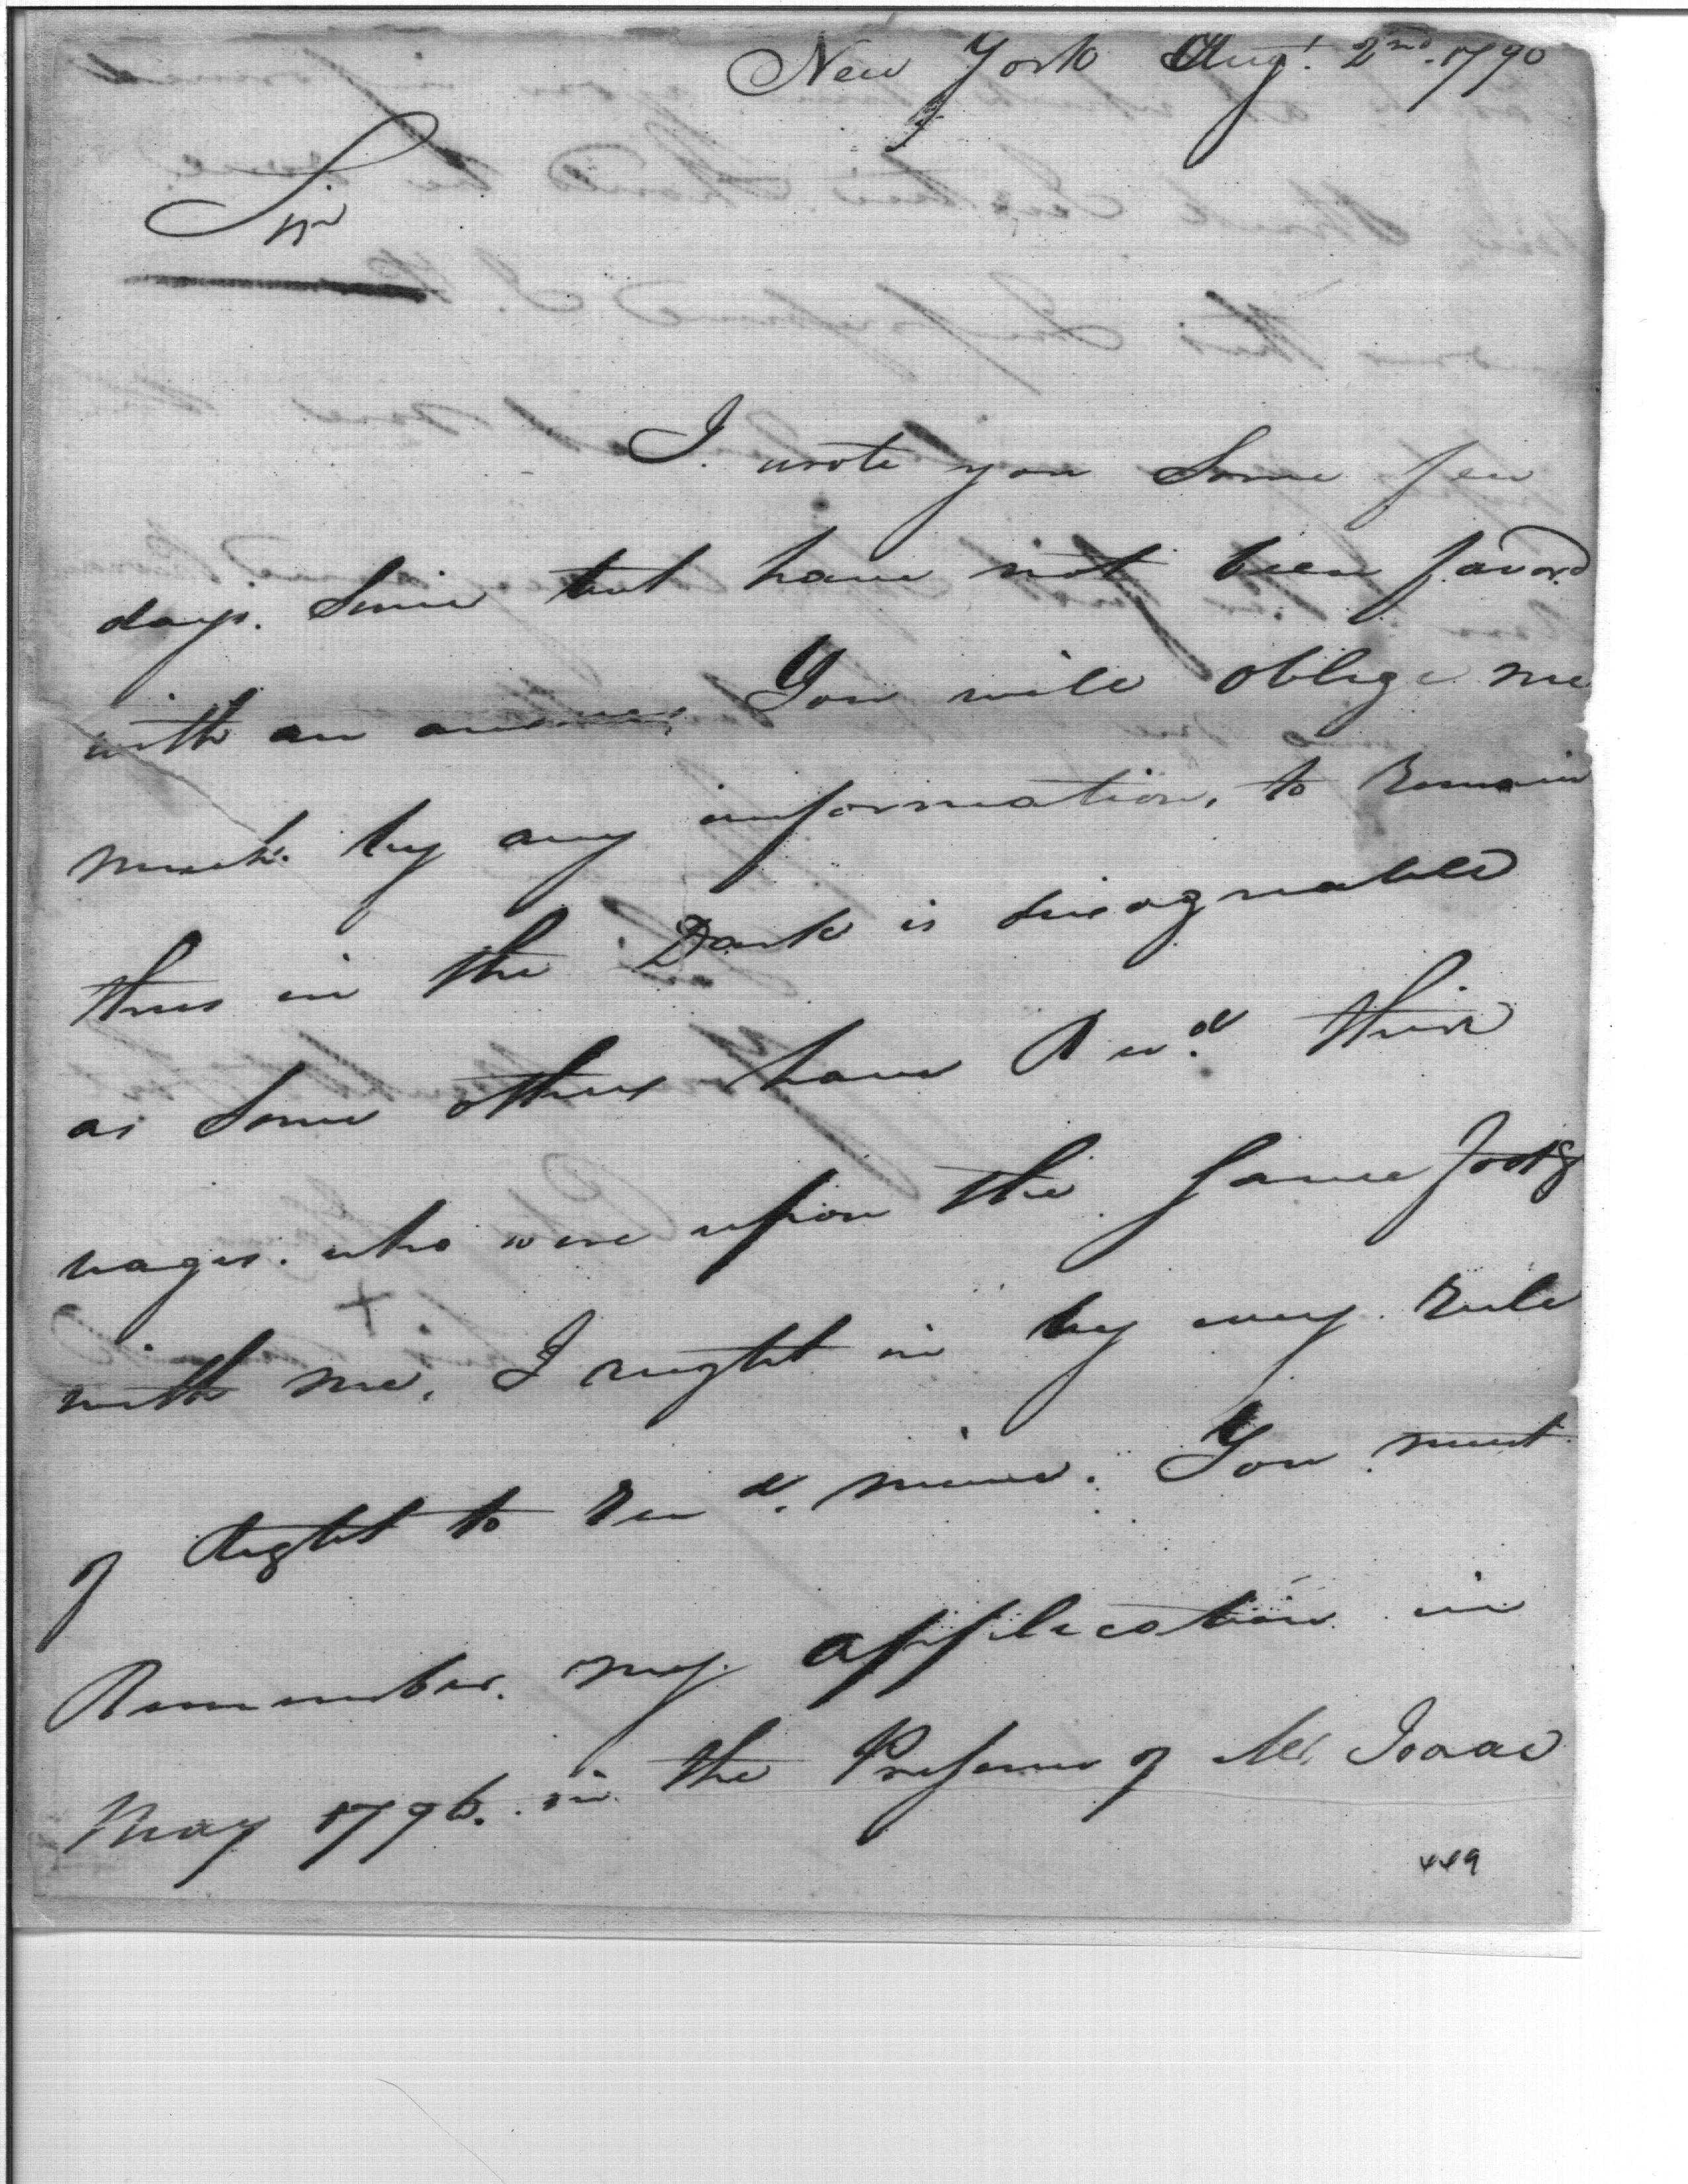 New York Augt. 2nd. 1790
Sir
I wrote you Some few
days. Since but have not been favord
with an answer, You will oblige me
much. by any information, to Remain
thus in the Dark is disagreable
as Some others have Recd. their
wages. who were upon the Same footg
with me, I ought in by every Rule
of Right to Recd. mine. You must
Remember. my application in
May 1796. in the Presence of Mr. Isaac
449